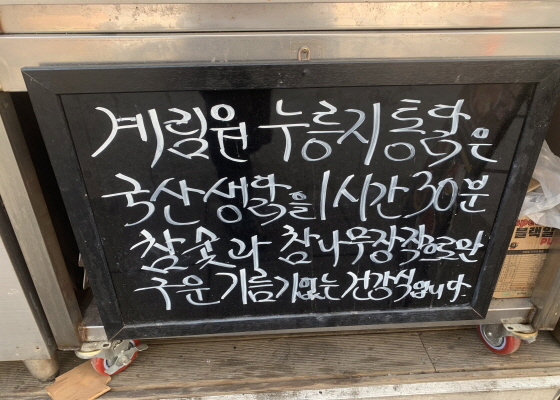 계림원 누룽지통닭은
국산생닭을 1시간 30분
참숯과 참나무장작으로만
구운 기름기없는 건강식입니다.